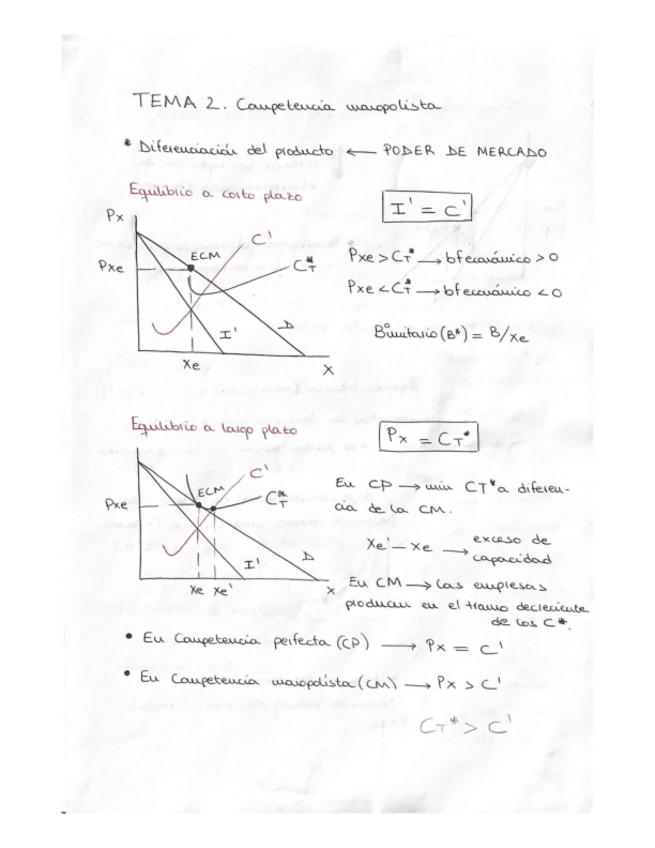 TEMA 2. Competencia monopolista
* Diferenciación del producto ← PODER DE MERCADO
Equilibrio a corto plazo
I' = C'
Px
C'
ECM
CT*
Pxe
I'
D
Xe
X
Pxe > CT* → bf económico > 0
Pxe < CT* → bf económico < 0
Bº unitario (B*) = B/xe
Equilibrio a largo plazo
Px = CT*
C'
ECM
CT*
Pxe
I'
D
Xe Xe'
X
En CP → min CT* a diferen-
cia de la CM.
Xe' - Xe → exceso de
capacidad
En CM → las empresas
producen en el tramo decreciente
de los C*.
• En Competencia perfecta (CP) → Px = C'
• En Competencia monopolista (CM) → Px > C'
CT* > C'